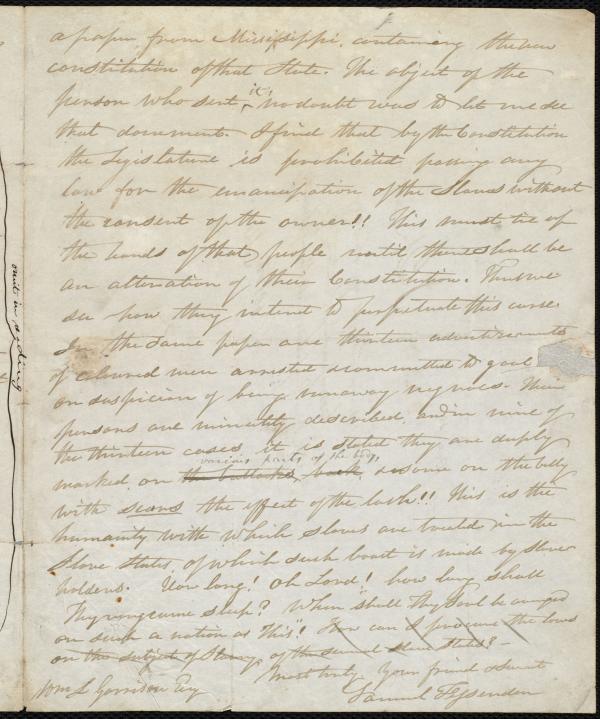 a paper from Mississippi, containing the new
constitution of that State. The object of the
person who sent it, no doubt was to let me see
that document. I find that by the Constitution
the Legislature is prohibited passing any
law for the emancipation of the slaves without
the consent of the owner!! This must tie up
the hands of that people until there shall be
an alteration of their Constitution. Thus we
see how they intend to perpetuate this curse.
In the same paper are thirteen advertisements
of coloured men arrested & committed to gaol
on suspicion of being runaway negroes. Their
persons are minutely described, and in nine of
the thirteen cases it is stated they are deeply
various parts of the body,
marked on the buttocks, back, & some on the belly
with scars the effect of the lash!! This is the
humanity with which slaves are treated in the
Slave States, of which such boast is made by slave
holders. How long! Oh Lord! how long shall
Thy vengeance sleep? When "shall Thy Soul be avenged
on such a nation as this"! How can I procure the laws
on the subject of Slavery of the several slave states?
Most truly Your friend & servt
Wm L Garrison Esq Samuel Fessenden
omit in